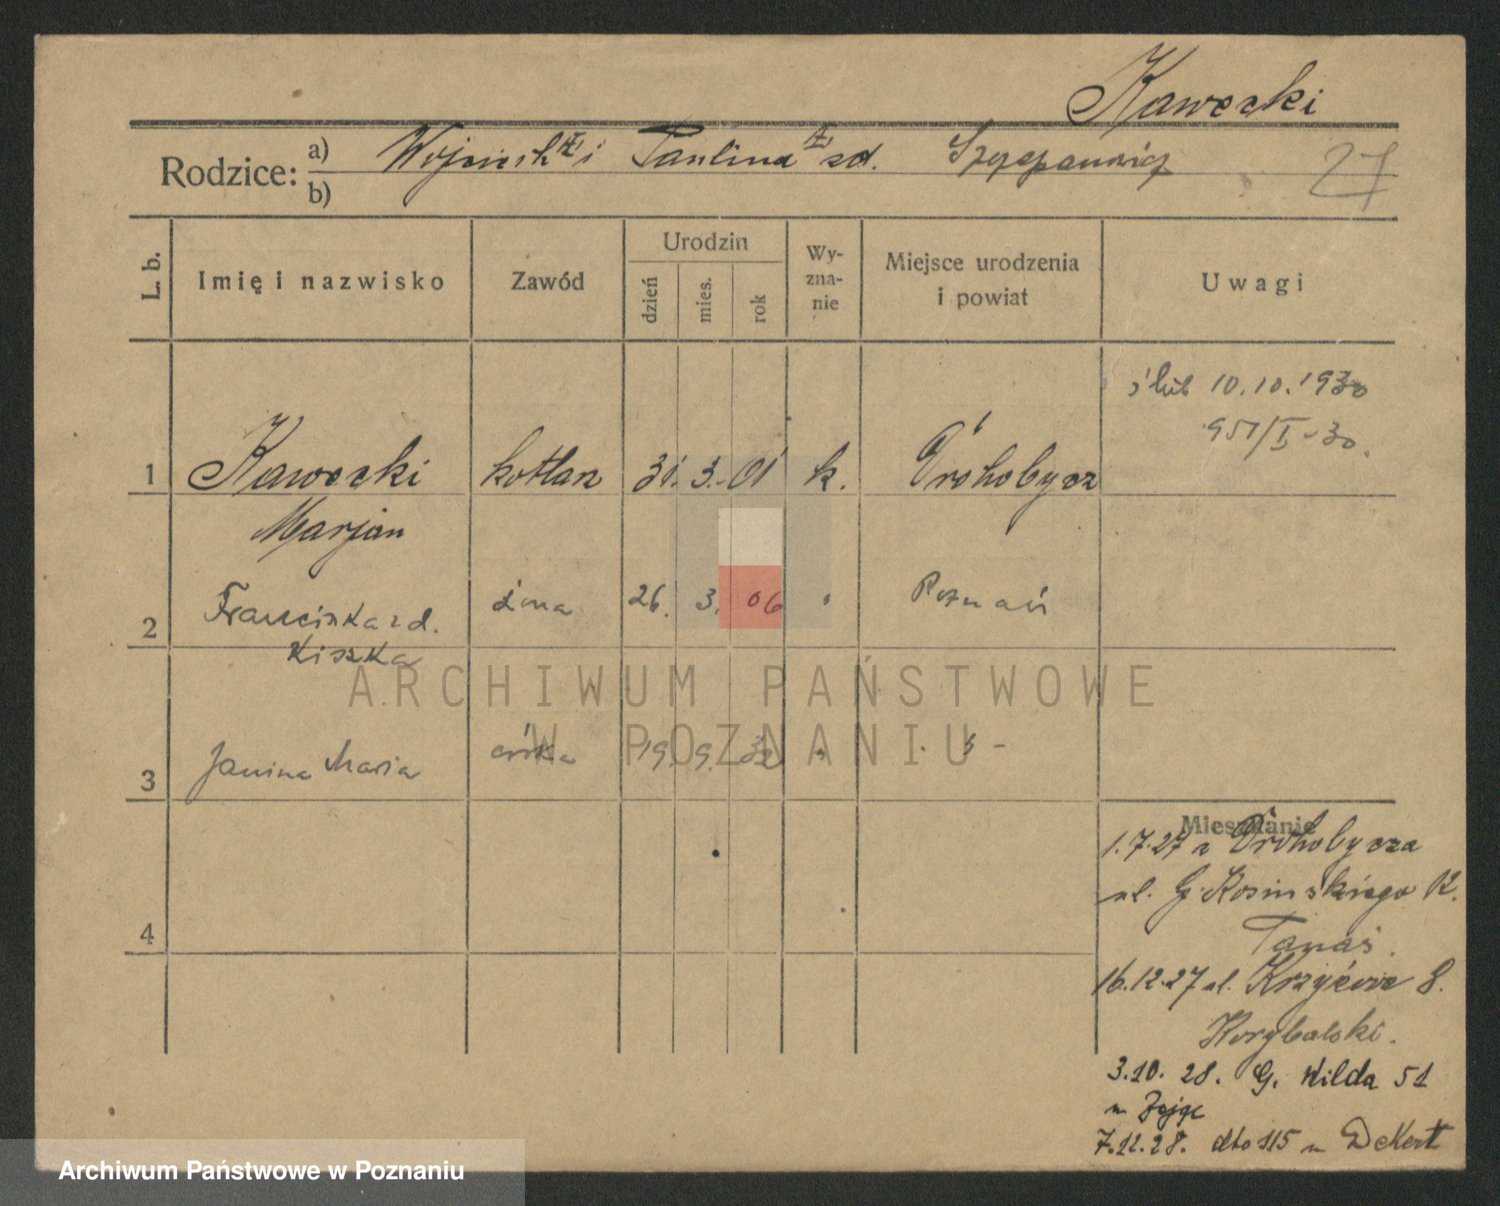 Kawecki
Rodzice: a) Wojciech i Paulina zd. Szczepanowicz
b)
27
L. b.
Imię i nazwisko
Zawód
Urodzin
dzień
mies.
rok
Wy-
zna-
nie
Miejsce urodzenia
i powiat
Uwagi
ślub 10.10.1930
951/I-30.
1 Kawecki kotlarz 31. 3. 01 k. Drohobycz
Marjan
2 Franciszka zd. żona 26. 3. 06 " Poznań
Kiszka
3 Janina Maria córka 19. 9. 32 " "
4
Mieszkanie
1.7.27 z Drohobycza
ul. G. Kosińskiego 12.
Tanaś.
16.12.27 ul. Krzyżowa 8.
Korybalski.
3.10. 28. G. Wilda 51
u
7.12.28. dto 115 u Dekert
ARCHIWUM PAŃSTWOWE
W POZNANIU
Archiwum Państwowe w Poznaniu